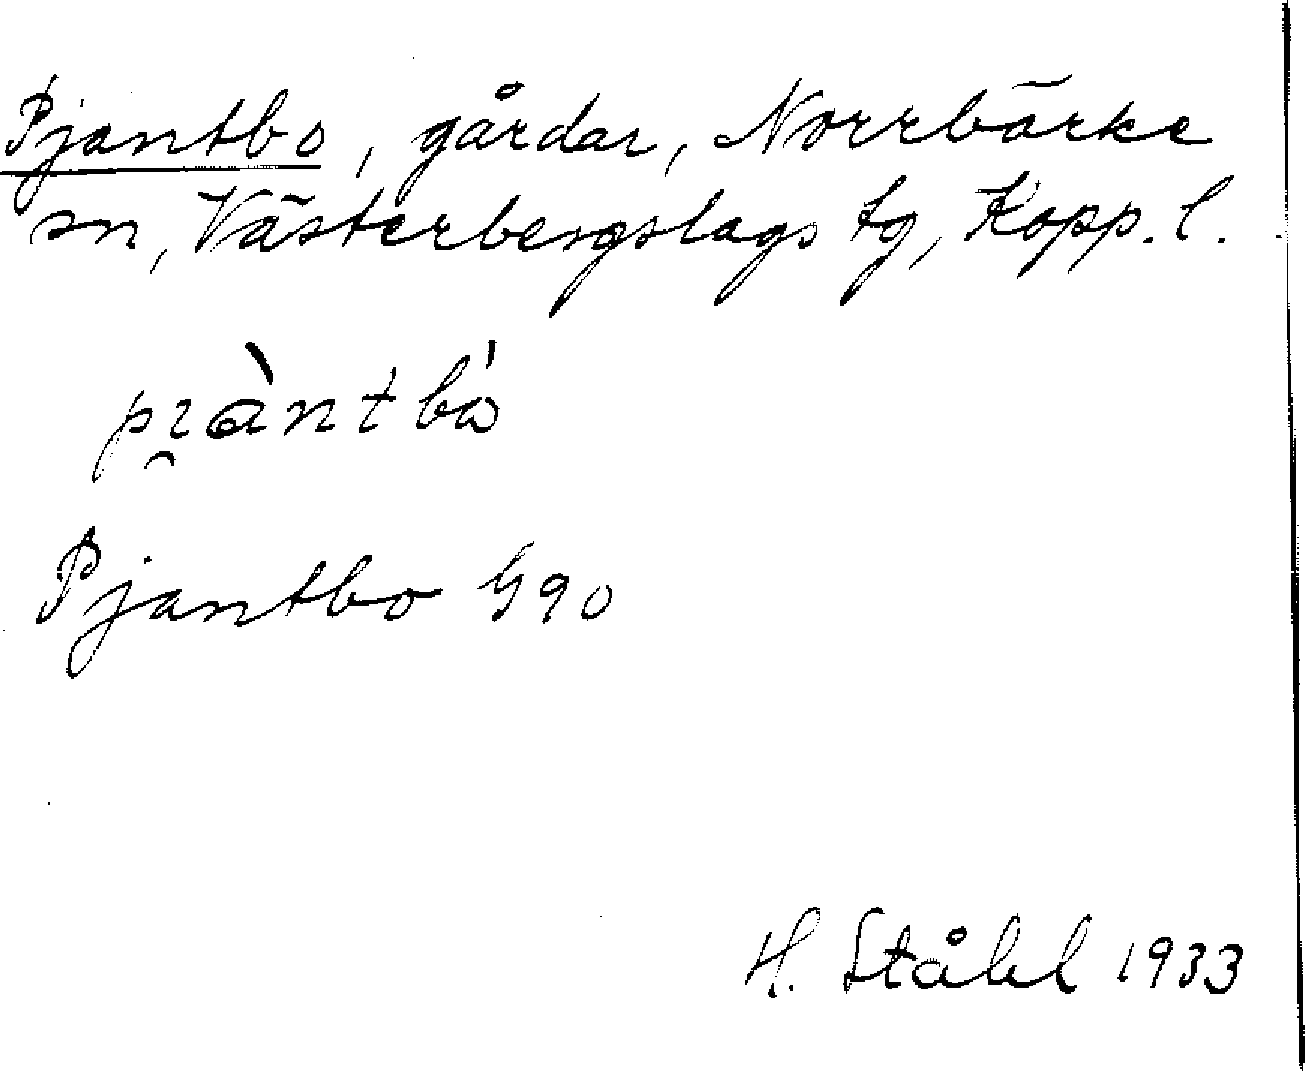 Pjantbo, gårdar, Norrbärke
sn, Västerbergslags tg, Kopp. l.
Pjantbo G90
H. Ståhl 1933